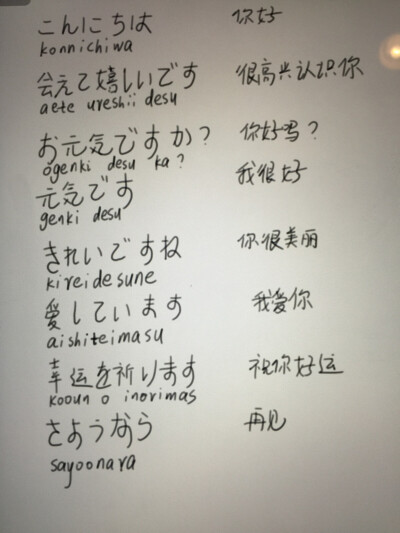 こんにちは 你好
konnichiwa
会えて嬉しいです 很高兴认识你
aete ureshii desu
お元気ですか？ 你好吗？
ogenki desu ka?
元気です 我很好
genki desu
きれいですね 你很美丽
kireidesune
愛しています 我爱你
aishiteimasu
幸运を祈ります 祝你好运
kooun o inorimas
さようなら 再见
sayoonara